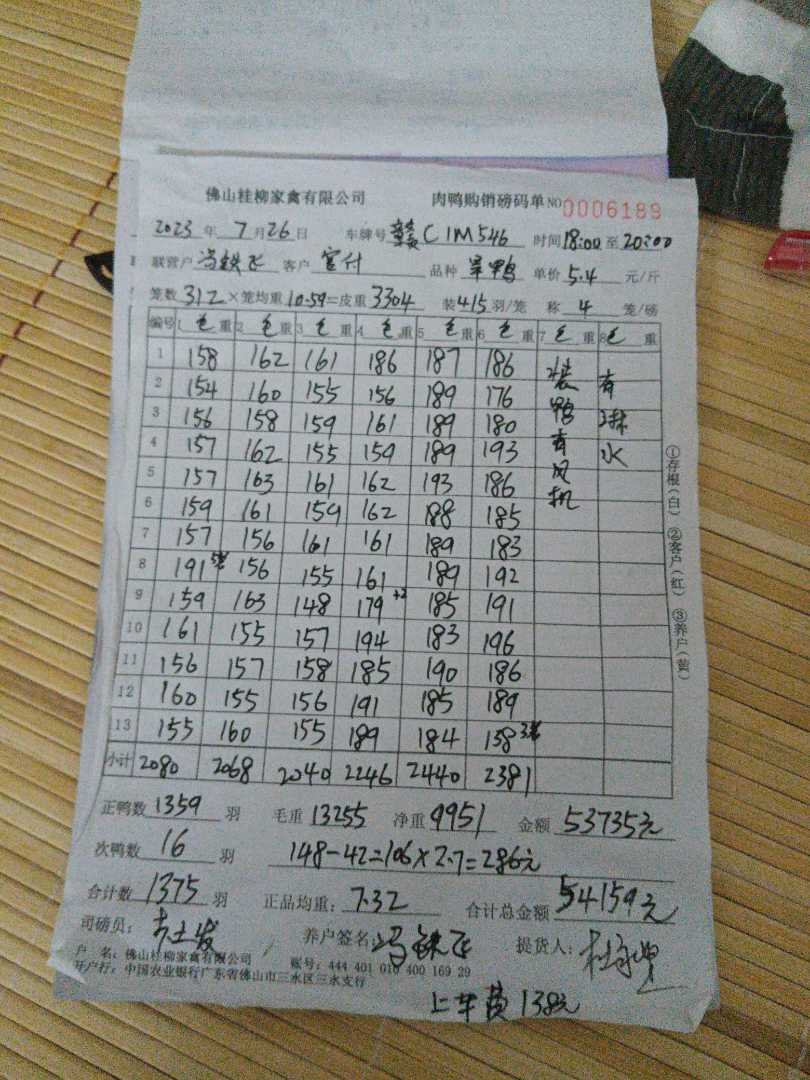 佛山桂柳家禽有限公司 肉鸭购销磅码单 NO 0006189
2023年7月26日 车牌号 赣C1M546 时间18:00至20:00
联营户 冯铁飞 客户 品种 旱鸭 单价5.4元/斤
笼数312×笼均重10.59=皮重3304 装415羽/笼 称4笼/磅
编号 1 毛重 2 毛重 3 毛重 4 毛重 5 毛重 6 毛重 7 毛重 8 毛重
1 158 162 161 186 187 186 装 有
2 154 160 155 156 189 176 鸭 淋
3 156 158 159 161 189 180 有 水
4 157 162 155 159 189 193 风
5 157 163 161 162 193 186 机
6 159 161 159 162 188 185
7 157 156 161 161 189 183
8 191 156 155 161 189 192
9 159 163 148 179+2 185 191
10 161 155 157 194 183 196
11 156 157 158 185 190 186
12 160 155 156 191 185 189
13 155 160 155 189 184 138
小计 2080 2068 2040 2246 2440 2381
正鸭数1359羽 毛重13255 净重9951 金额53735元
次鸭数16羽 148-42=106×2.7=286元
合计数1375羽 正品均重:7.32 合计总金额54159元
司磅员: 养户签名:冯铁飞 提货人:
户 名:佛山桂柳家禽有限公司 账号:444 401 010 400 169 29
开户行:中国农业银行广东省佛山市三水区三水支行
上车费138元
①存根(白) ②客户(红) ③养户(黄)